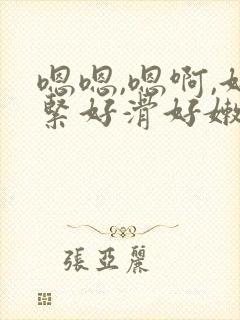 嗯嗯,嗯啊,好
緊好滑好嫩
張亞麗